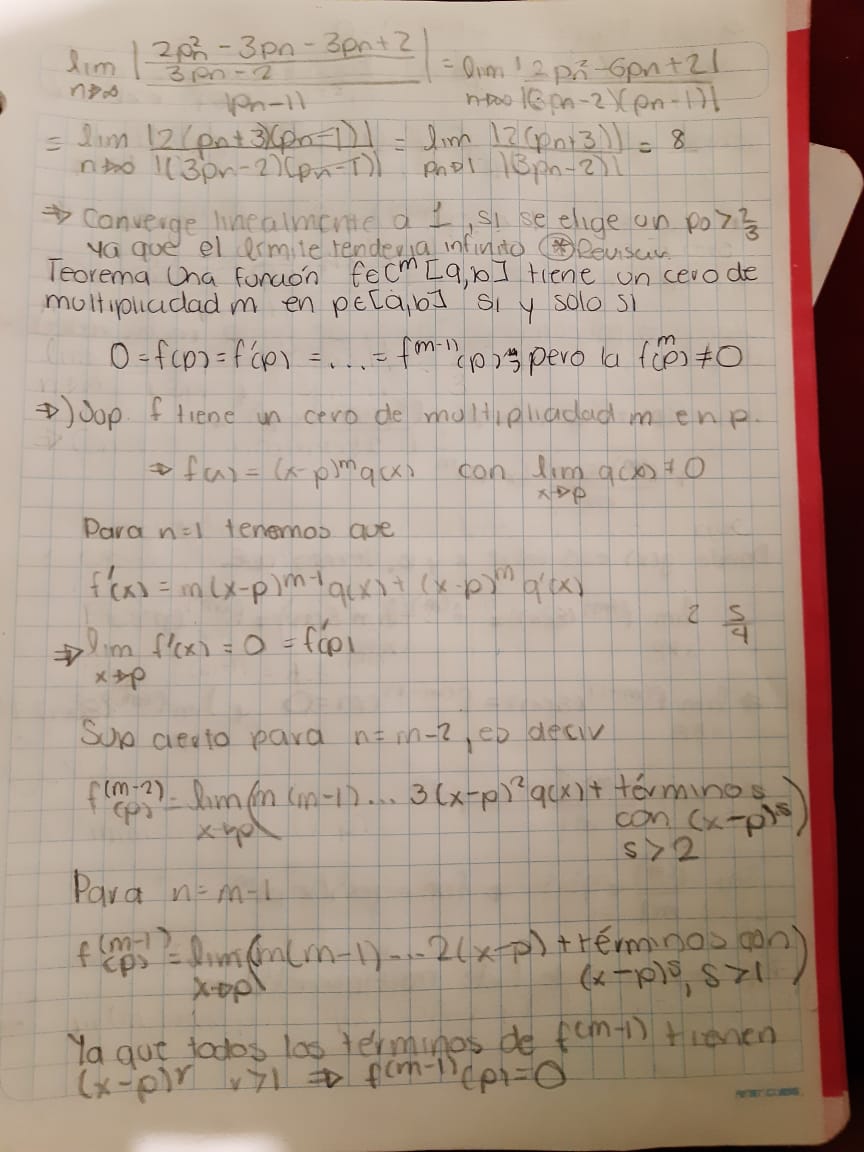 lim_{n→∞} | (2pn² - 3pn - 3pn + 2)/(3pn - 2) | / |pn - 1| = lim_{n→∞} |2pn² - 6pn + 2| / |(3pn - 2)(pn - 1)|
= lim_{n→∞} |2(pn+3)(pn-1)| / |(3pn-2)(pn-1)| = lim_{pn→1} |2(pn+3)| / |(3pn-2)| = 8
⇒ Converge linealmente a 1, si se elige un p0 > 2/3
ya que el límite tendería infinito (*) Revisar
Teorema Una función f∈C^m [a,b] tiene un cero de
multiplicidad m en p∈[a,b] si y solo si
0 = f(p) = f'(p) = ... = f^{m-1}(p), pero la f^m(p) ≠ 0
⇒) Sup. f tiene un cero de multiplicidad m en p.
⇒ f(x) = (x-p)^m q(x) con lim_{x→p} q(x) ≠ 0
Para n=1 tenemos que
f'(x) = m(x-p)^{m-1} q(x) + (x-p)^m q'(x)
5/4
⇒ lim_{x→p} f'(x) = 0 = f'(p)
Sup cierto para n = m-2, es decir
f^{(m-2)}(p) = lim_{x→p} (m(m-1)... 3(x-p)² q(x) + términos
con (x-p)^s)
s > 2
Para n = m-1
f^{(m-1)}(p) = lim_{x→p} (m(m-1)...2(x-p) + términos con
(x-p)^s, s>1)
Ya que todos los términos de f^{(m-1)} tienen
(x-p)^r r>1 ⇒ f^{(m-1)}(p) = 0